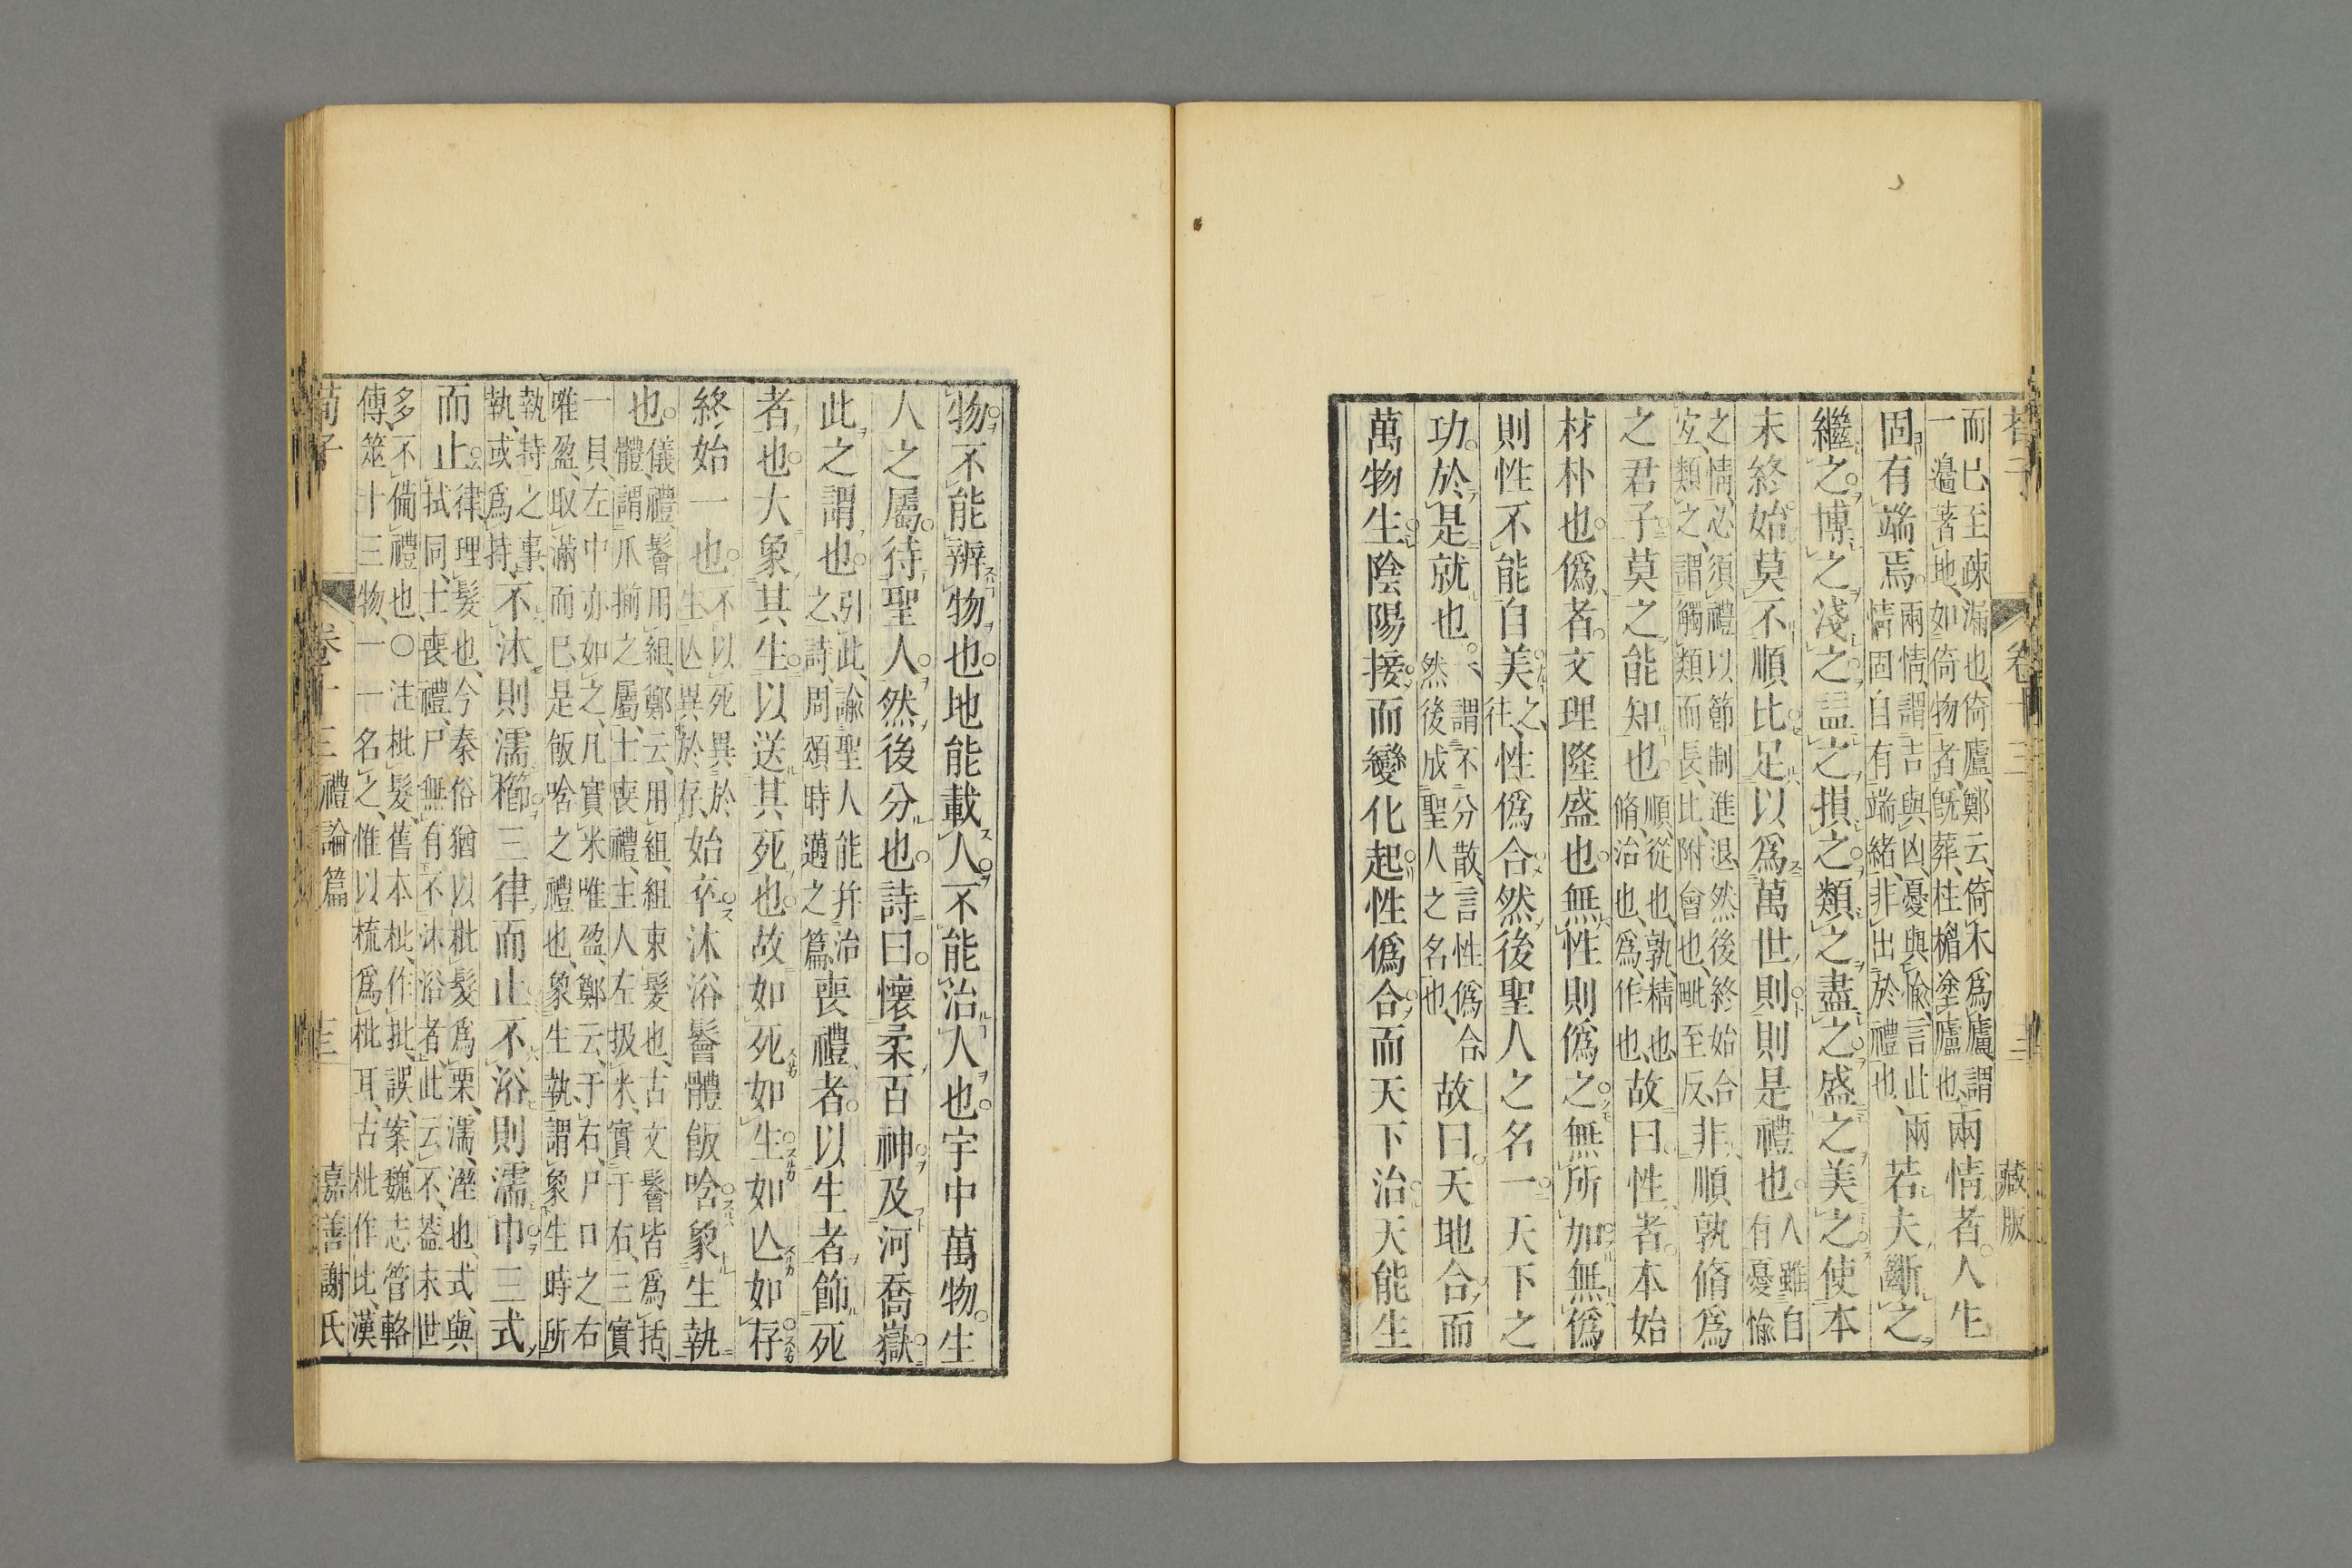 而已至疎漏也倚廬鄭云倚木爲廬謂
一邉著地如倚物者旣葬柱楣塗廬也
兩情者人生
固有端焉
兩情謂吉與凶憂與愉言此兩
情固自有端緒非出於禮也
若夫斷之
繼之博之淺之益之損之類之盡之盛之美之使本
末終始莫不順比足以爲萬世則則是禮也
人雖自
有憂愉
之情必須禮以節制進退然後終始合
宜類之謂觸類而長比附會也毗至反
非順孰脩爲
之君子莫之能知也
順從也孰精也
脩治也爲作也
故曰性者本始
材朴也僞者文理隆盛也無性則僞之無所加無僞
則性不能自美
之
往
性僞合然後聖人之名一天下之
功於是就也
一謂不分散言性僞合
然後成聖人之名也
故曰天地合而
萬物生陰陽接而變化起性僞合而天下治天能生
物不能辨物也地能載人不能治人也宇中萬物生
人之屬待聖人然後分也詩曰懷柔百神及河喬嶽
此之謂也
引此諭聖人能幷治
之詩周頌時邁之篇
喪禮者以生者飾死
者也大象其生以送其死也故如死如生如亾如存
終始一也
不以死異於
生亾異於存
始卒沐浴鬠體飯唅象生執
也
儀禮鬠用組鄭云用組組束髮也古文鬠皆爲括
體謂爪揃之屬士喪禮主人左扱米實于右三實
一貝左中亦如之凡實米唯盈鄭云于右尸口之右
唯盈取滿而已是飯唅之禮也象生執謂象生時所
執持之事
執或爲持
不沐則濡櫛三律而止不浴則濡巾三式
而止
律理髮也今秦俗猶以枇髮爲栗濡溼也式與
拭同士喪禮尸無有不沐浴者此云不葢末世
多不備禮也〇注枇髮舊本枇作批誤案魏志管輅
傳筮十三物一一名之惟以梳爲枇耳古枇作比漢
荀子 卷十三 禮論篇 十三 嘉善謝氏
藏版